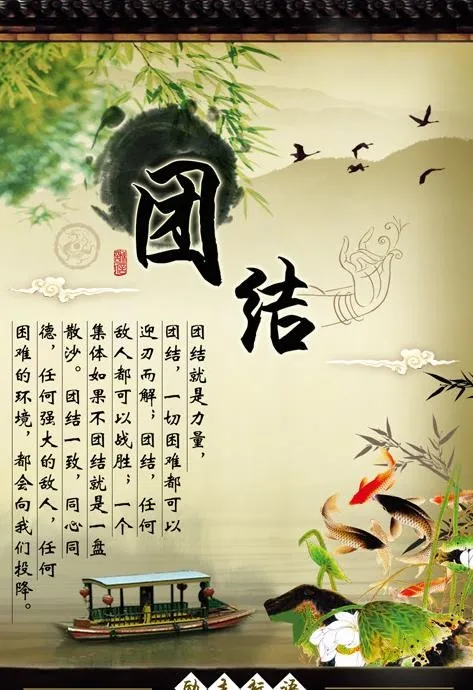 团结
团结就是力量，
团结，一切困难都可以
迎刃而解；团结，任何
敌人都可以战胜；一个
集体如果不团结就是一盘
散沙。团结一致，同心同
德，任何强大的敌人，任何
困难的环境，都会向我们投降。